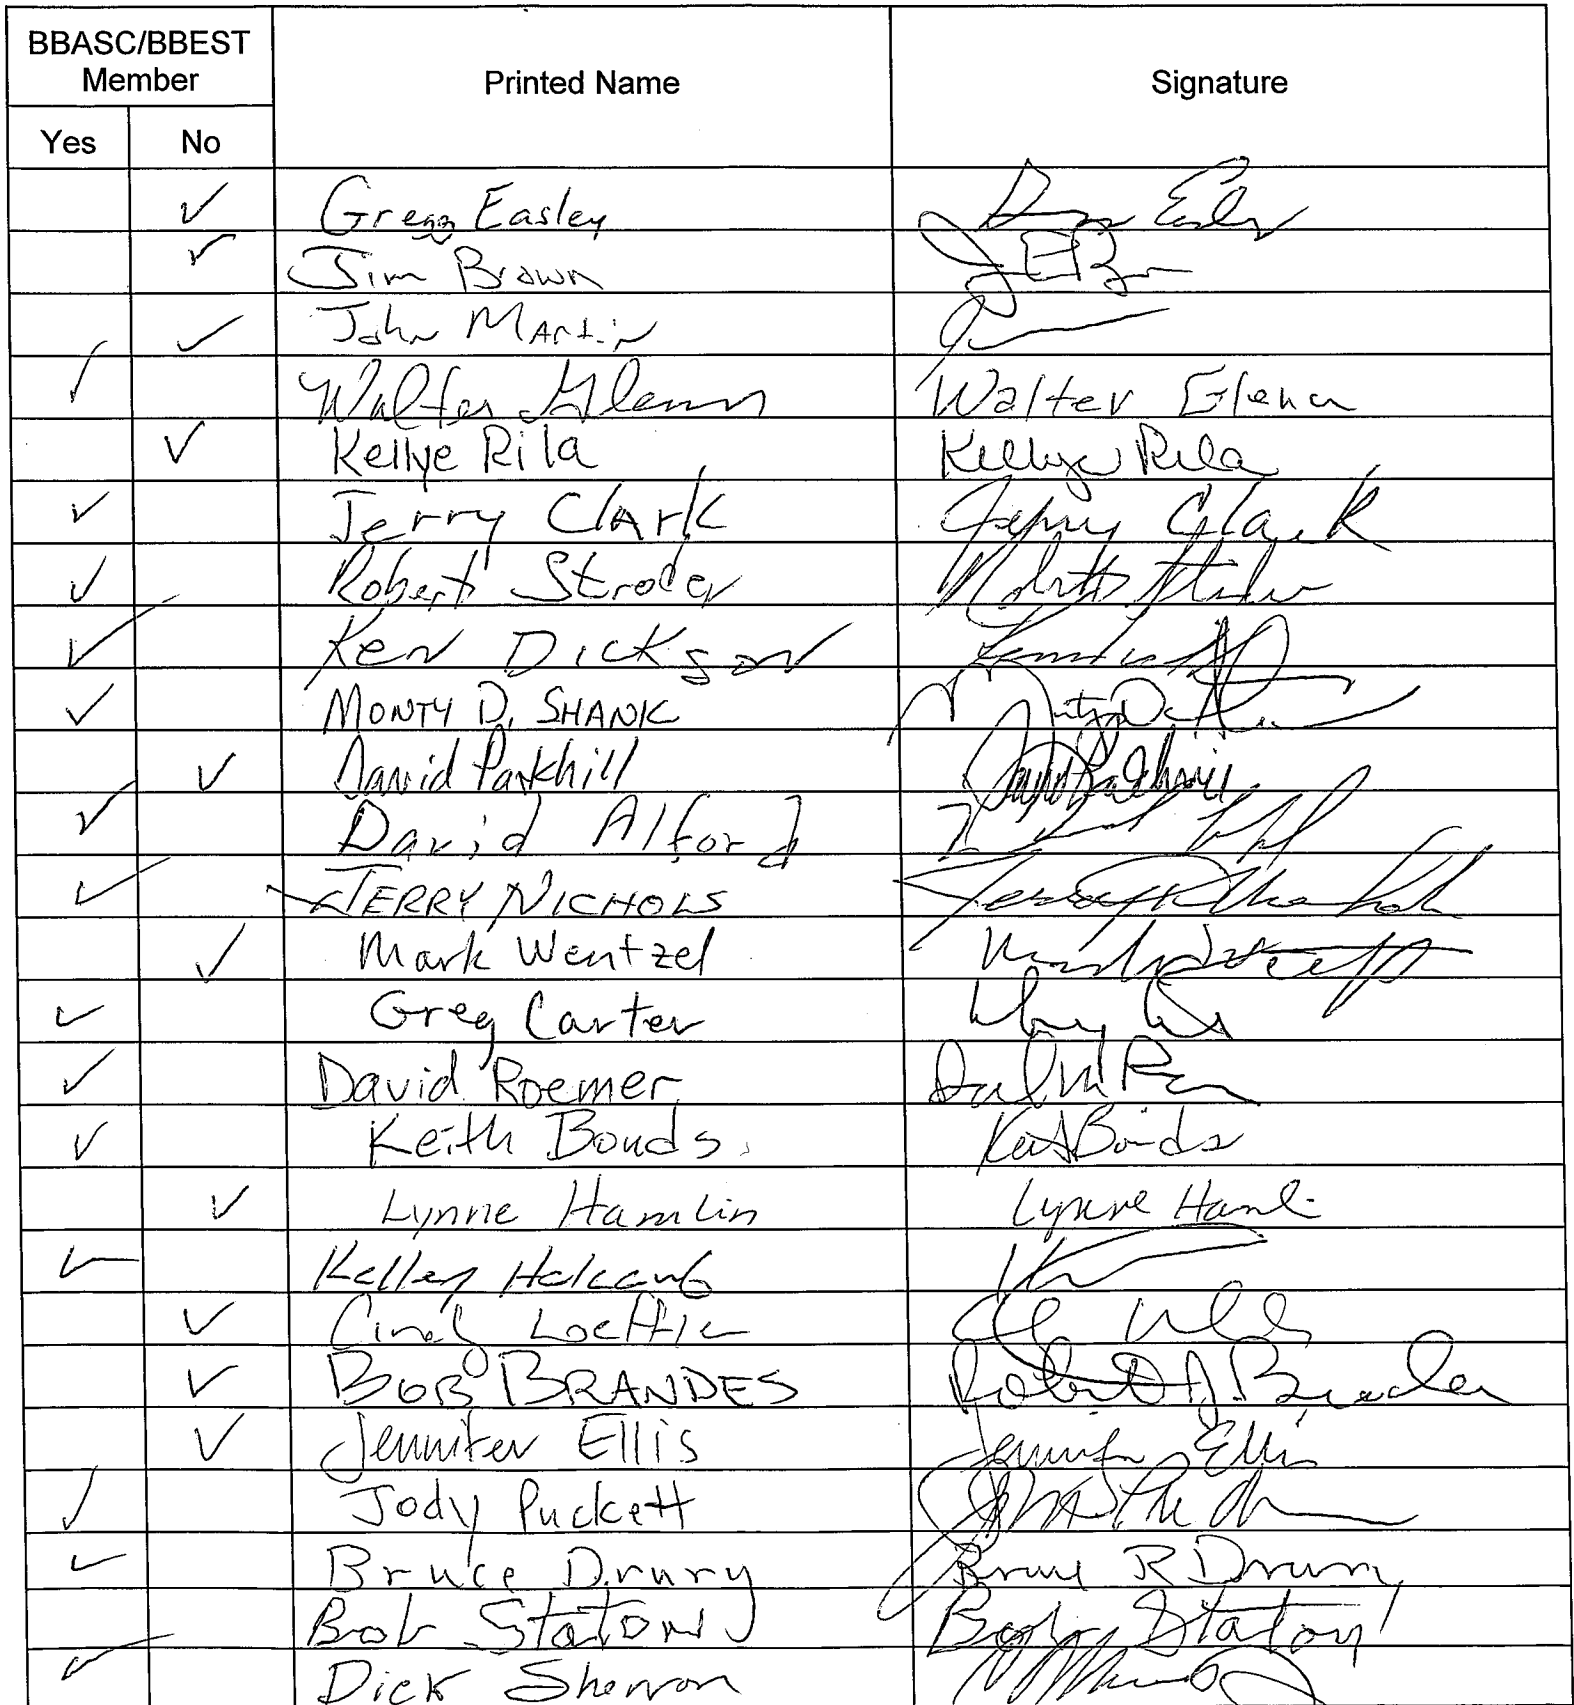 BBASC/BBEST Member Printed Name Signature
Yes No
✓ Gregg Easley
✓ Jim Brown
✓ John Martin
✓ Walter Glenn Walter Glenn
✓ Kellye Rila Kellye Rila
✓ Jerry Clark Jerry Clark
✓ Robert Stroder
✓ Ken Dickson
✓ MONTY D. SHANK
✓ David Parkhill
✓ David Alford
✓ JERRY NICHOLS
✓ Mark Wentzel
✓ Greg Carter
✓ David Roemer
✓ Keith Bonds. Keith Bonds
✓ Lynne Hamlin Lynne Hamli
✓ Kelley Holcomb
✓ Cindy Loeffler
✓ BOB BRANDES Robert J. Brandes
✓ Jennifer Ellis Jennifer Ellis
✓ Jody Puckett
✓ Bruce Drury Bruce R Drury
Bob Staton Bob Staton
✓ Dick Sherron